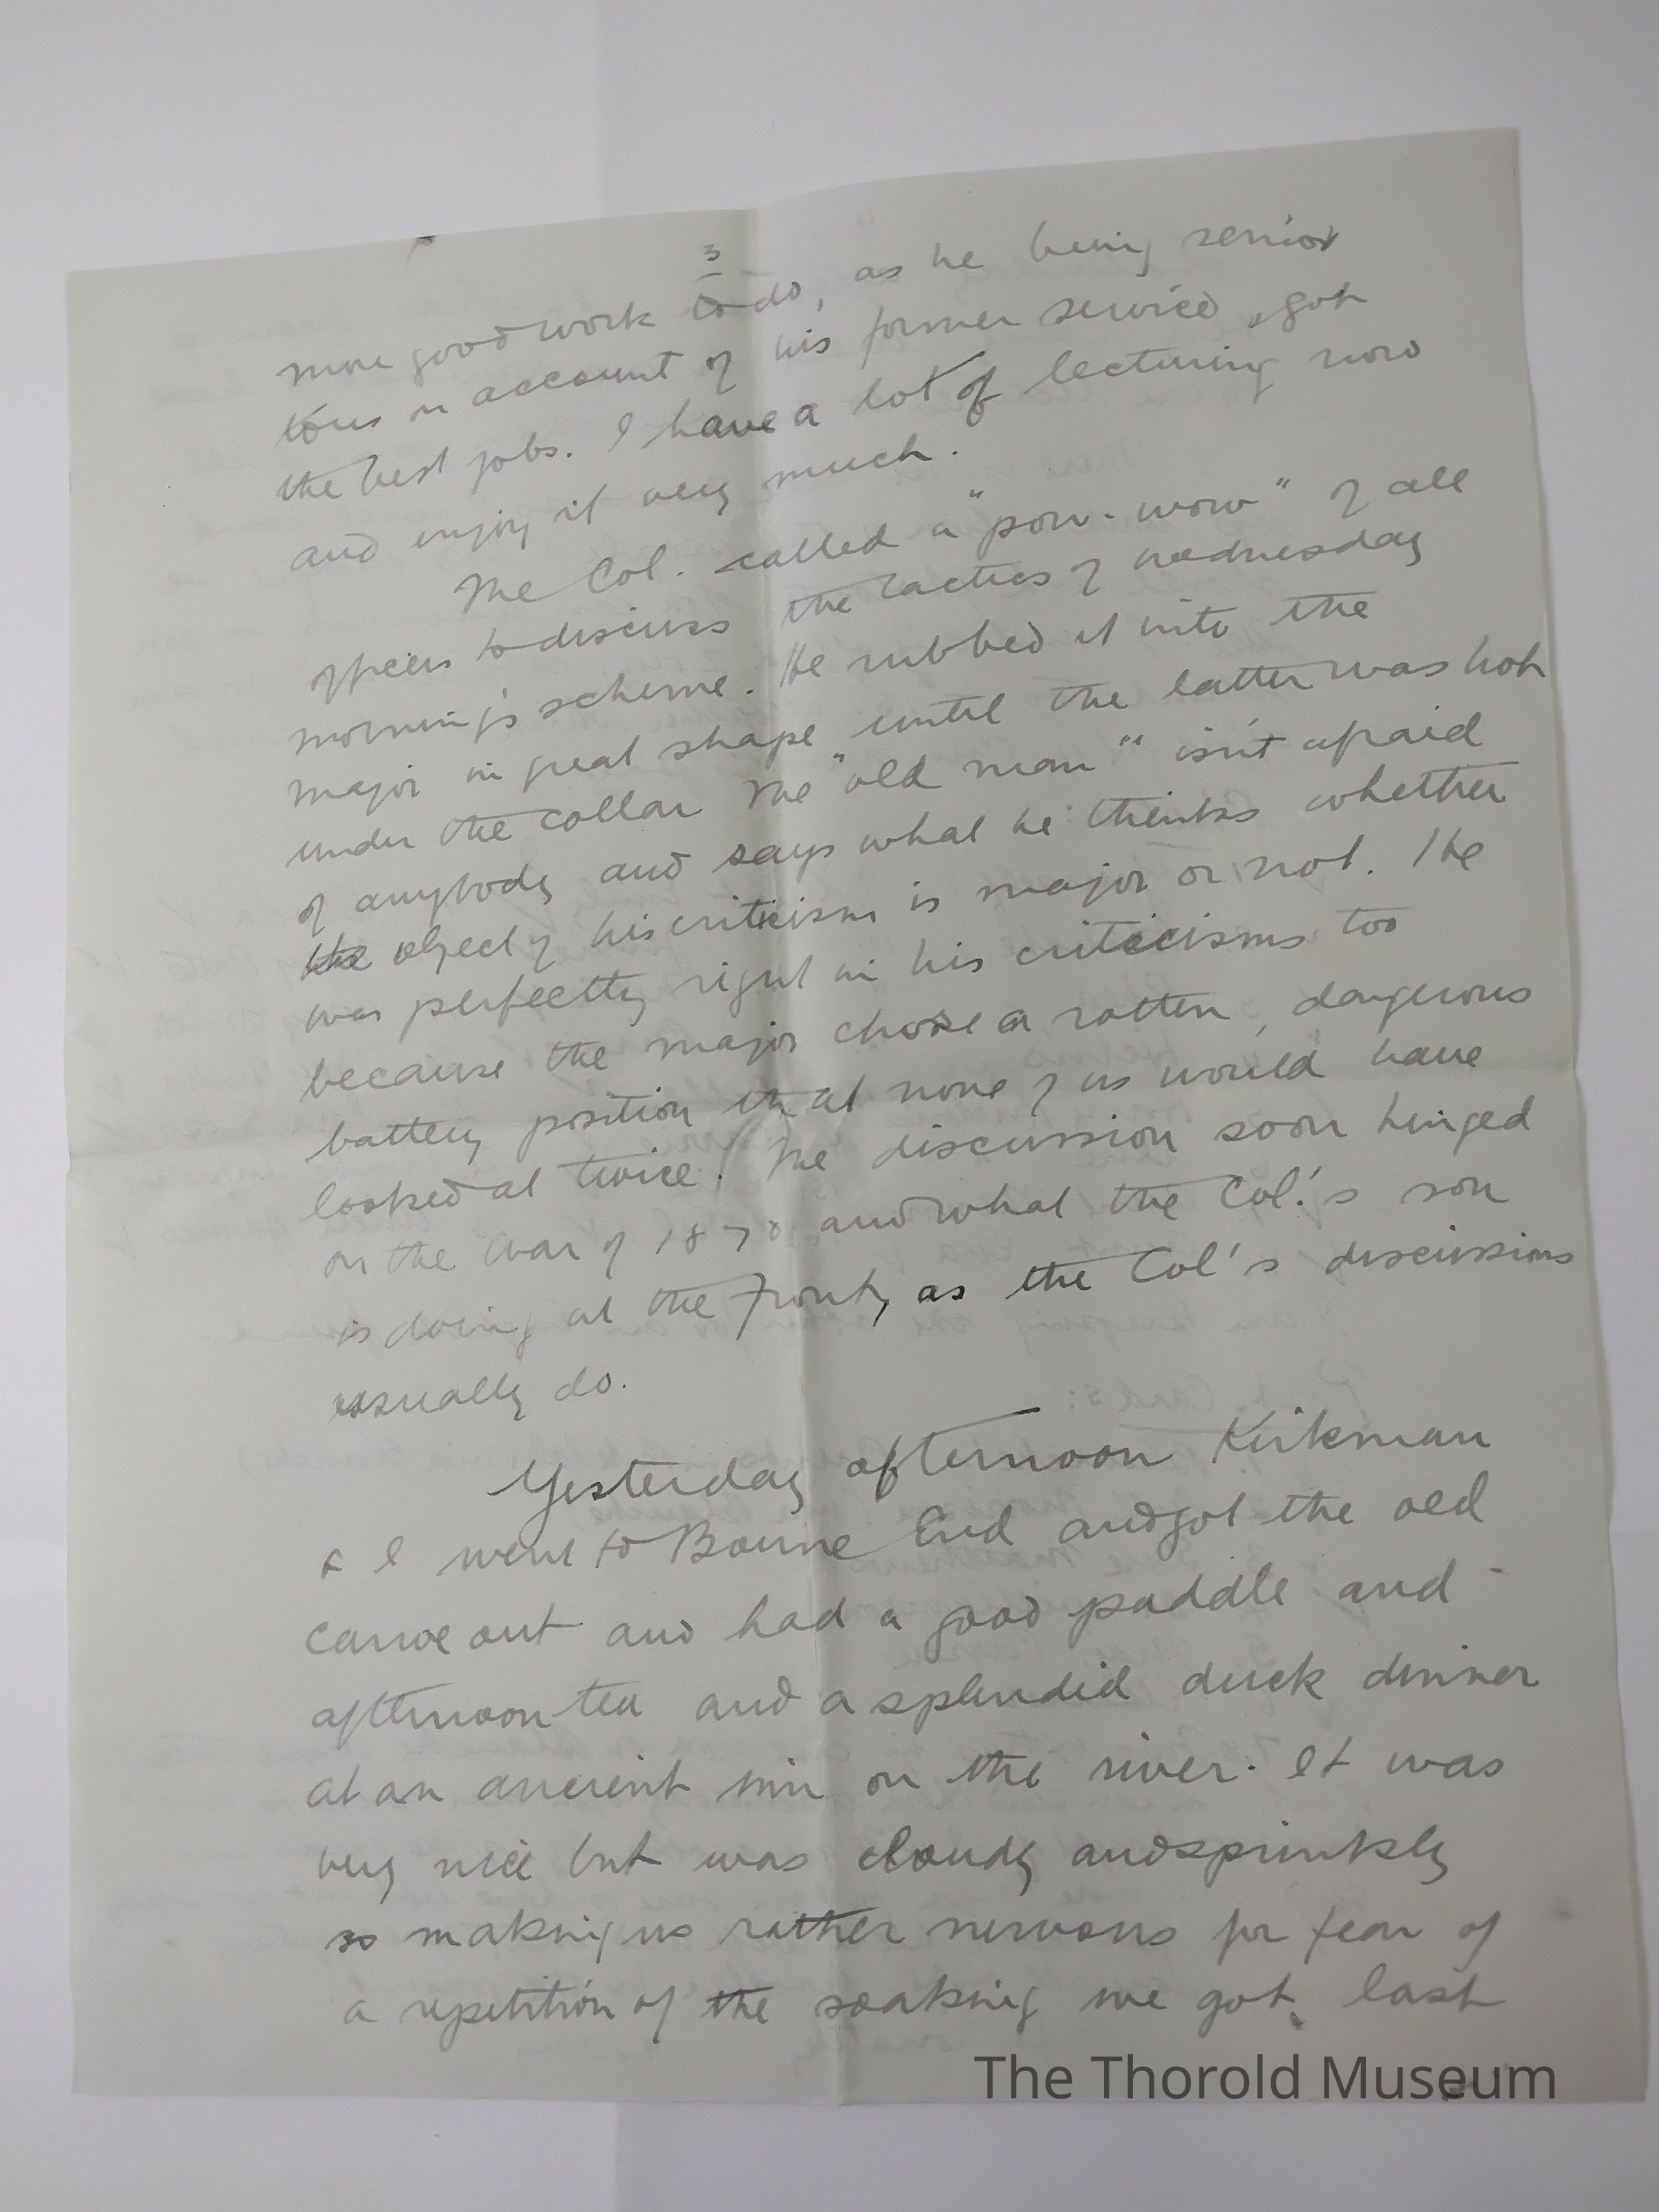 3
more good work to do, as he being senior
to us on account of his former service, got
the best jobs. I have a lot of lecturing now
and enjoy it very much.
The Col. called a "pow-wow" of all
officers to discuss the tactics of wednesday
morning's scheme. He rubbed it into the
major in great shape until the latter was hot
under the collar The "old man" isn't afraid
of anybody and says what he thinks whether
the object of his criticism is major or not. He
was perfectly right in his criticisms too
because the major chose a rotten, dangerous
battery position that none of us would have
looked at twice. The discussion soon hinged
on the war of 1870 and what the Col.'s son
is doing at the front, as the Col's discussions
usually do.
Yesterday afternoon Kirkman
& I went to Bourne End and got the old
canoe out and had a good paddle and
afternoon tea and a splendid duck dinner
at an ancient inn on the river. It was
very nice but was cloudy and sprinkly
so making us rather nervous for fear of
a repetition of the soaking we got last
The Thorold Museum